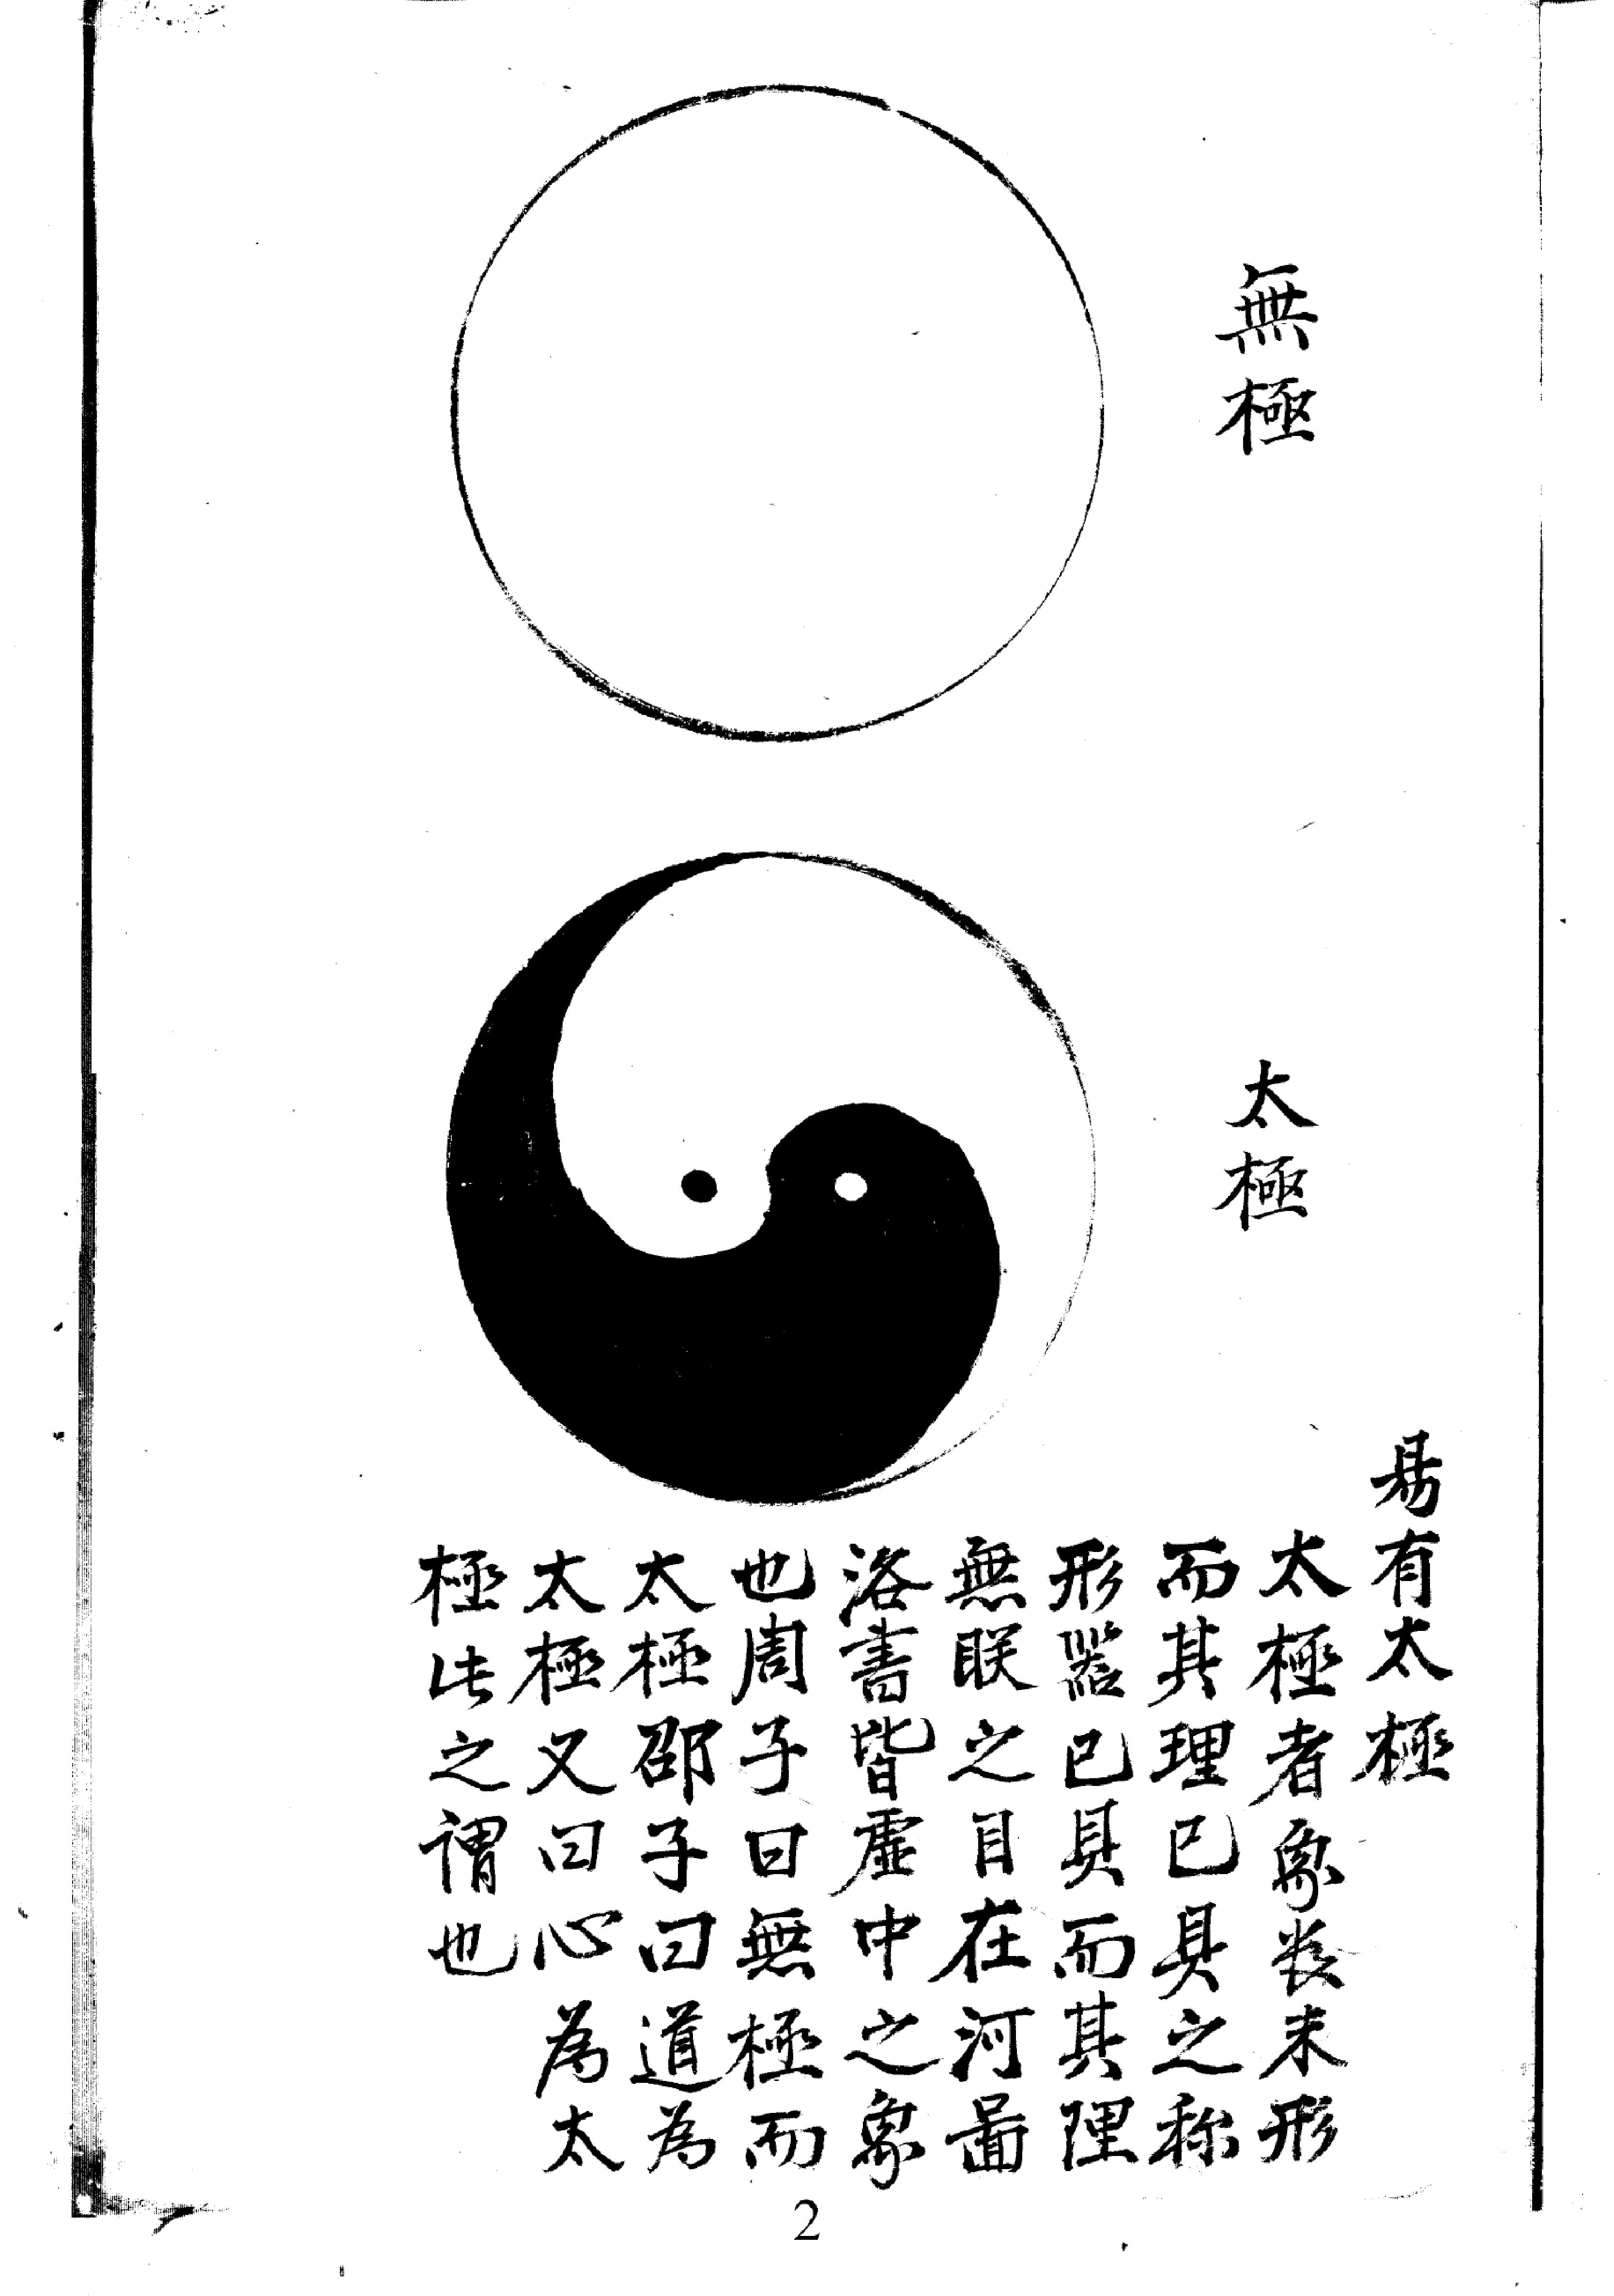 無極
太極
易有太極
太極者象数未形
而其理已具之称
形器已具而其理
無眹之目在河圖
洛書皆虛中之象
也周子曰無極而
太極邵子曰道為
太極又曰心為太
極此之謂也
2